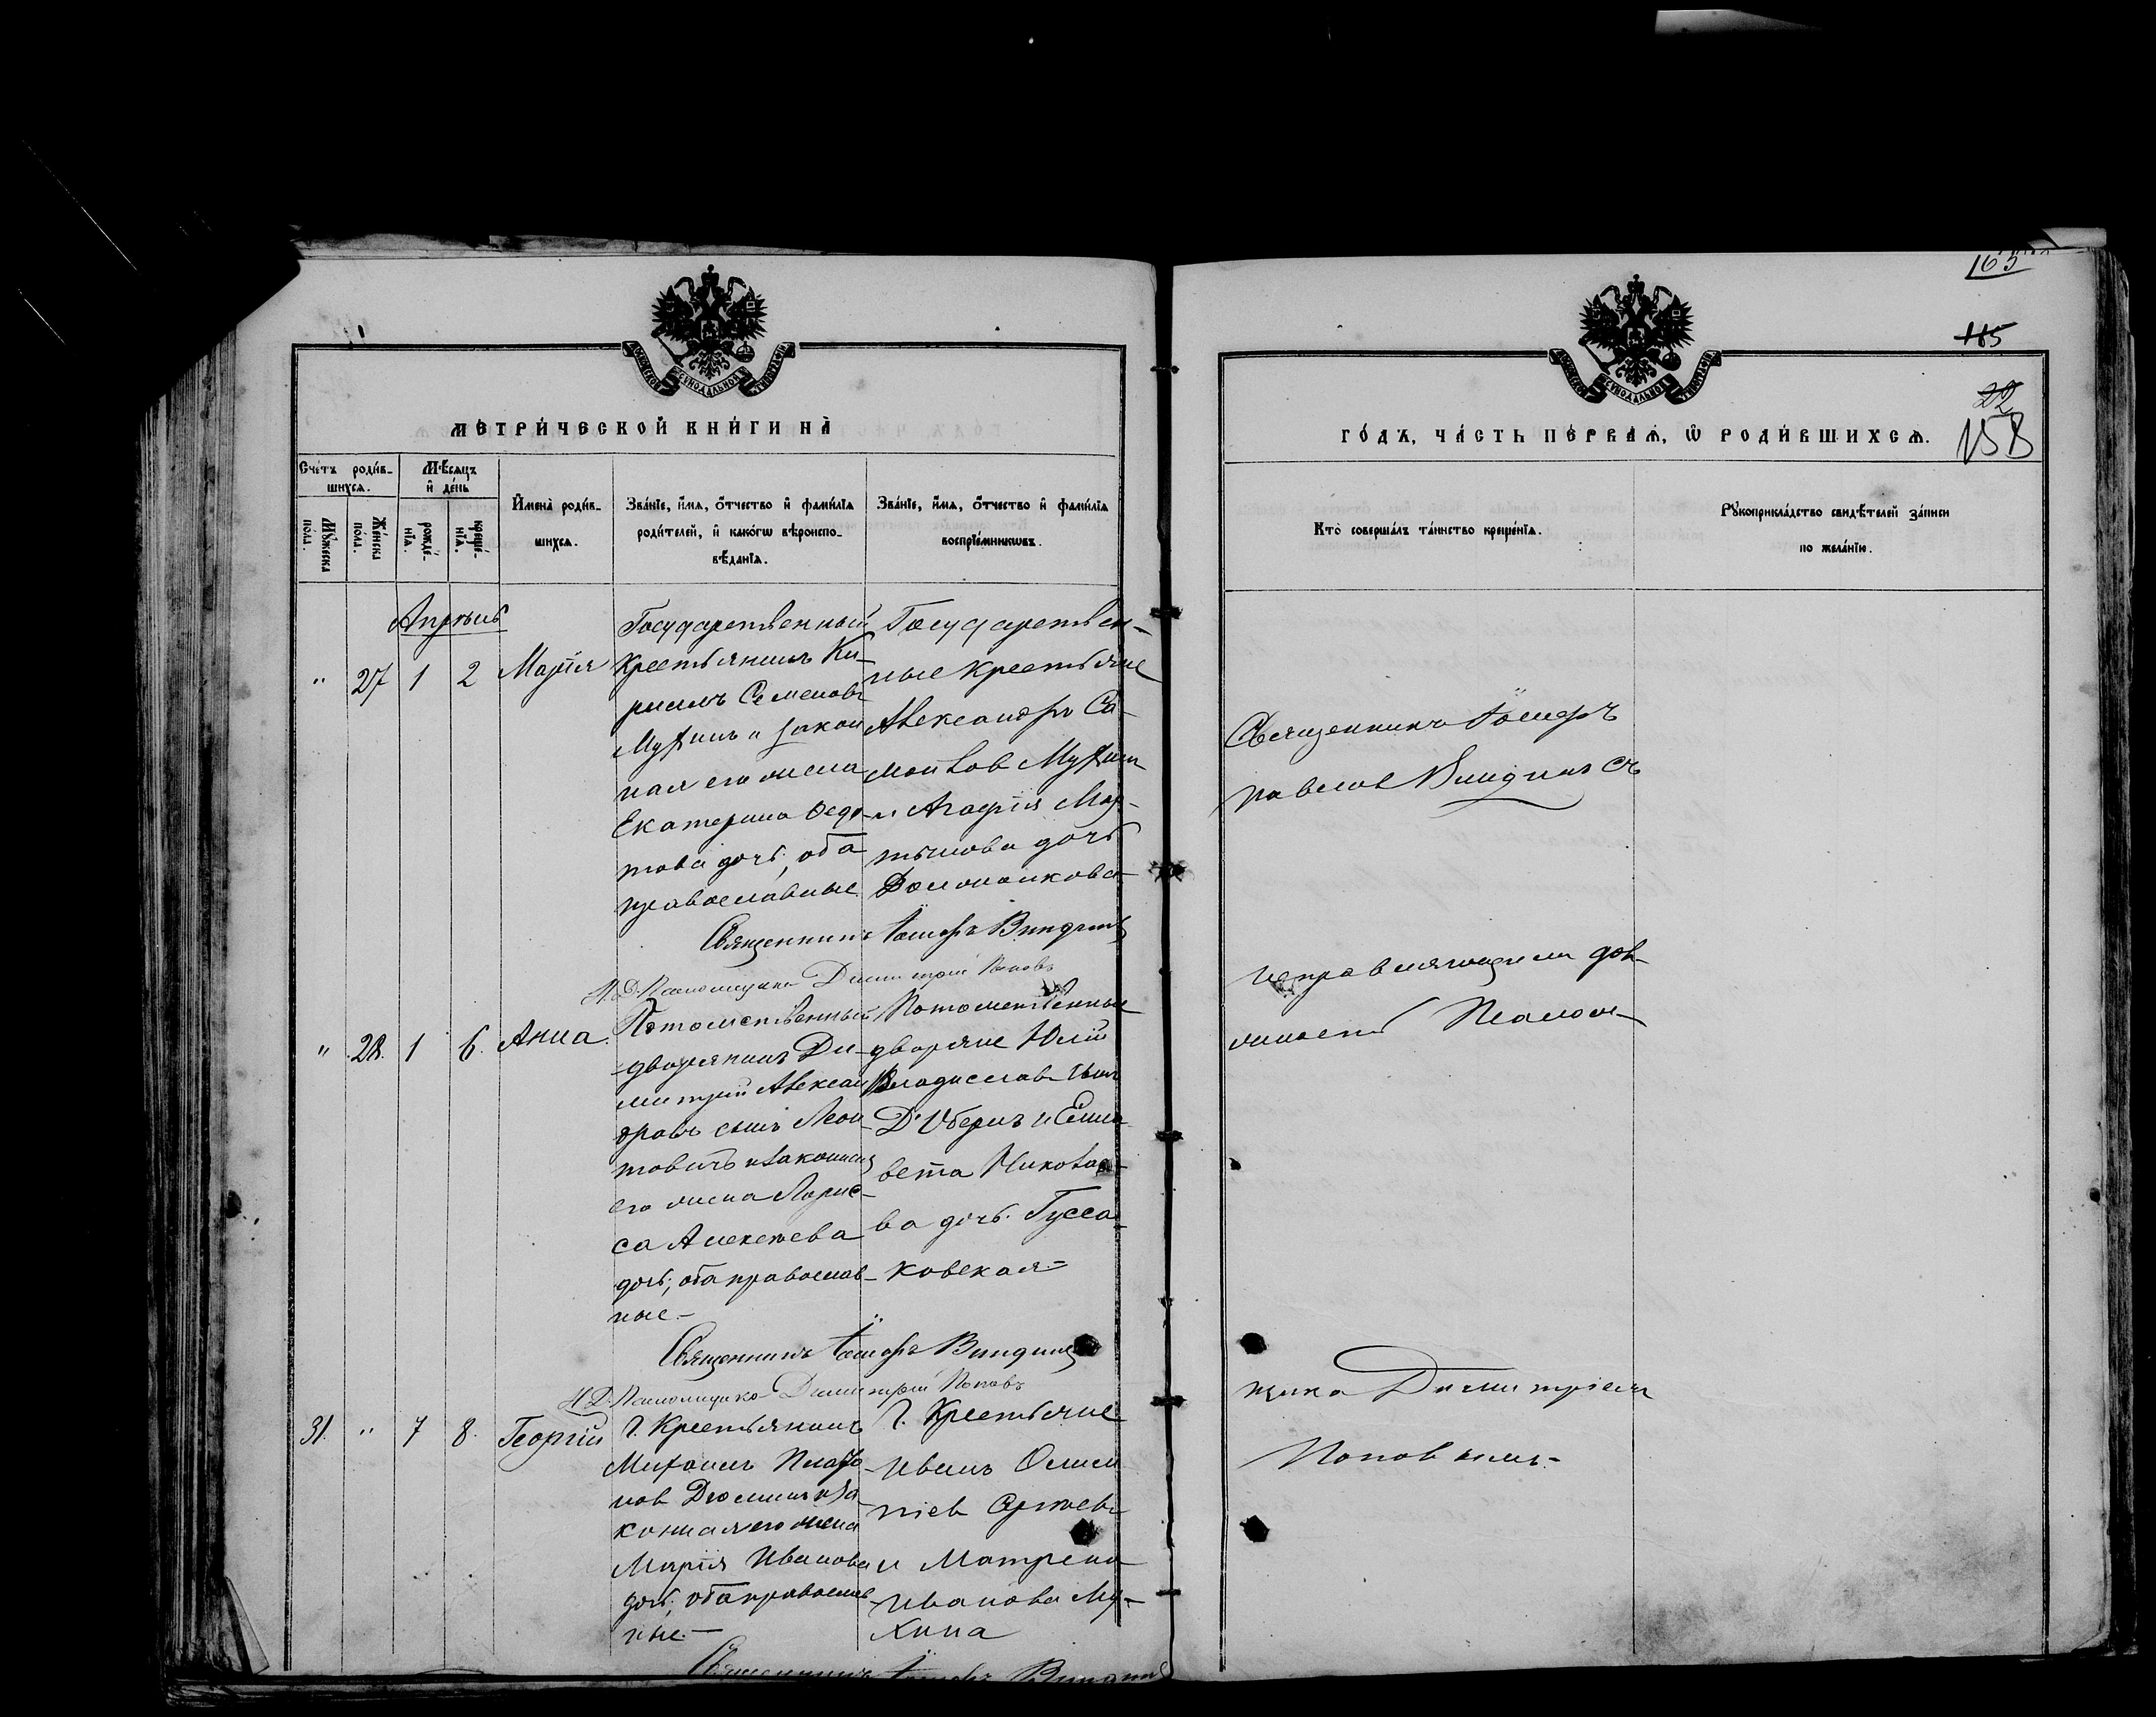 163
185
22
158
МЕТРИ́ЧЕСКОЙ КНИ́ГИ НА̀
ГО́ДЪ, ЧА́СТЬ ПЕ́РВАЯ, Ѡ҆ РОДИ́ВШИХСЯ.
Сче́тъ роди́в-
шихся.
Мѣ́сяцъ
и҆ де́нь
Мꙋ́жеска
по́ла.
Же́нска
по́ла.
рожде́-
нїя.
креще́-
нїя.
И҆мена̀ роди́в-
шихся.
Зва́нїе, и҆́мя, ѻ҆́тчество и҆ фами́лїя
роди́телей, и҆ како́гѡ вѣроиспо-
вѣ́данїя.
Зва́нїе, и҆́мя, ѻ҆́тчество и҆ фами́лїя
воспрїе́мникѡвъ.
Кто̀ соверша́лъ та́инство креще́нїя.
Рꙋкоприкла́дство свидѣ́телей за́писи
по жела́нїю.
Апрѣль
" 27 1 2 Марія
Государственный
Крестьянинъ Ки-
рилъ Семеновъ
Мухинъ и закон
ная его жена
Екатерина Федо-
това дочь, оба
православные
Государствен-
ные крестьяне
Александръ Са-
мойлов Мухин
и Агафія Мар-
тынова дочь
Священникъ Іосифъ
Павлов Виндинъ съ
Священникъ Іосифъ Виндинъ
И. Д. Псаломщика Димитрій Поповъ
" 28. 1 6. Анна.
Потомственный
дворянинъ Ди-
митрій Алексан
дровъ сынъ Леон
товичъ и законная
его жена Лари-
са Алексѣева
дочь, оба православ-
ные.-
Потомственные
дворяне Юлій
Владиславъ сынъ
и Елиза
вета Никола-
ва дочь Гусса-
ковская=
исправляющим дол-
жность Псалом-
щика Димитріем
Поповымъ.-
Священникъ Іосифъ Виндинъ
И. Д. Псаломщика Димитрій Поповъ
31. " 7 8. Георгій
Г. Крестьянинъ
Михаилъ Плато
нов Дюминъ и за-
конная его жена
Марія Иванова
дочь, оба православ-
ные.-
Г. Крестьяне
Иванъ
и Матрена
Иванова Му-
хина
Священникъ Іосифъ Виндинъ